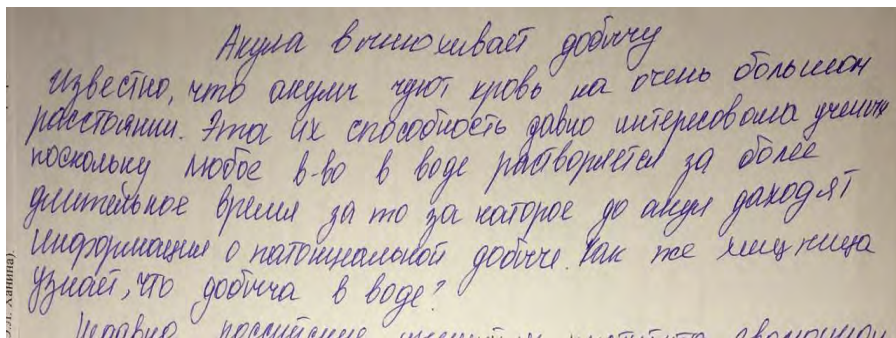 Акула вынюхивает добычу
Известно, что акулы чуют кровь на очень большом
расстоянии. Эта их способность давно интересовала ученых
поскольку любое в-во в воде растворяется за более
длительное время за то за которое до акул даходят
информация о патоциальной добыче. Как же хищница
узнает, что добыча в воде?
российские
Ханина).